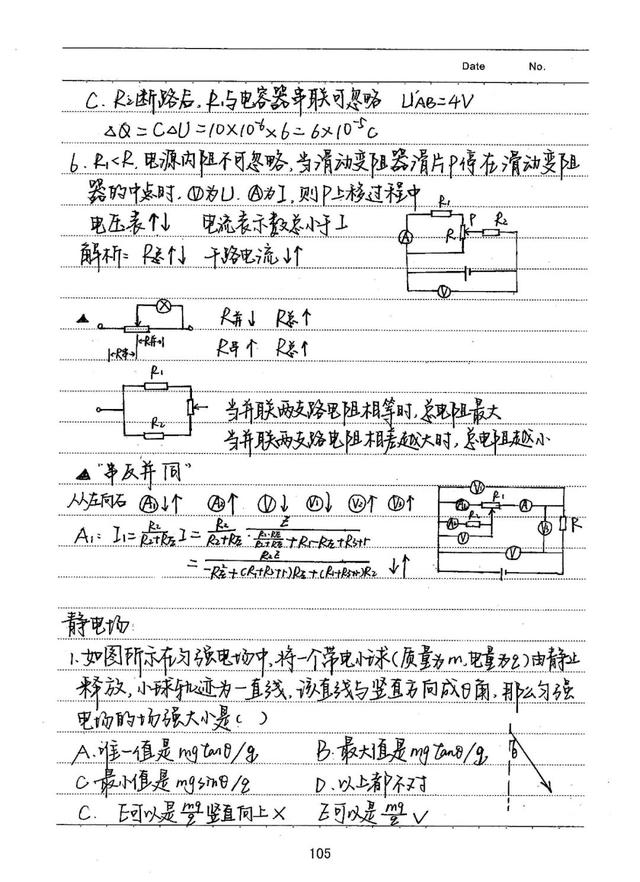 Date No.
C. R₂断路后, R₁与电容器串联可忽略 U'AB=4V
△Q=C△U=10×10⁻⁶×6=6×10⁻⁵C
6. R₁<R, 电源内阻不可忽略, 当滑动变阻器滑片P停在滑动变阻
器的中点时, Ⓥ为U, Ⓐ为I, 则P上移过程中
电压表↑↓ 电流表示数总小于I
解析: R总↑↓ 干路电流↓↑
R₁ P R₂ R A V
▲ R并↓ R总↑
R串↑ R总↑
R并 R串
R₁
R₂
当并联两支路电阻相等时, 总电阻最大
当并联两支路电阻相差越大时, 总电阻越小
▲ "串反并同"
从左向右 A₁↓↑ A₂↑ V↓ V₁↓ V₂↑ V₃↑
A₁: I₁=
=
↓↑
静电场:
1.如图所示在匀强电场中, 将一个带电小球(质量为m,电量为q)由静止
释放, 小球轨迹为一直线, 该直线与竖直方向成θ角, 那么匀强
电场的场强大小是( )
A.唯一值是mgtanθ/q B.最大值是mgtanθ/q
C.最小值是mgsinθ/q D.以上都不对
θ
C. E可以是mg/q竖直向上× E可以是mg/q√
105